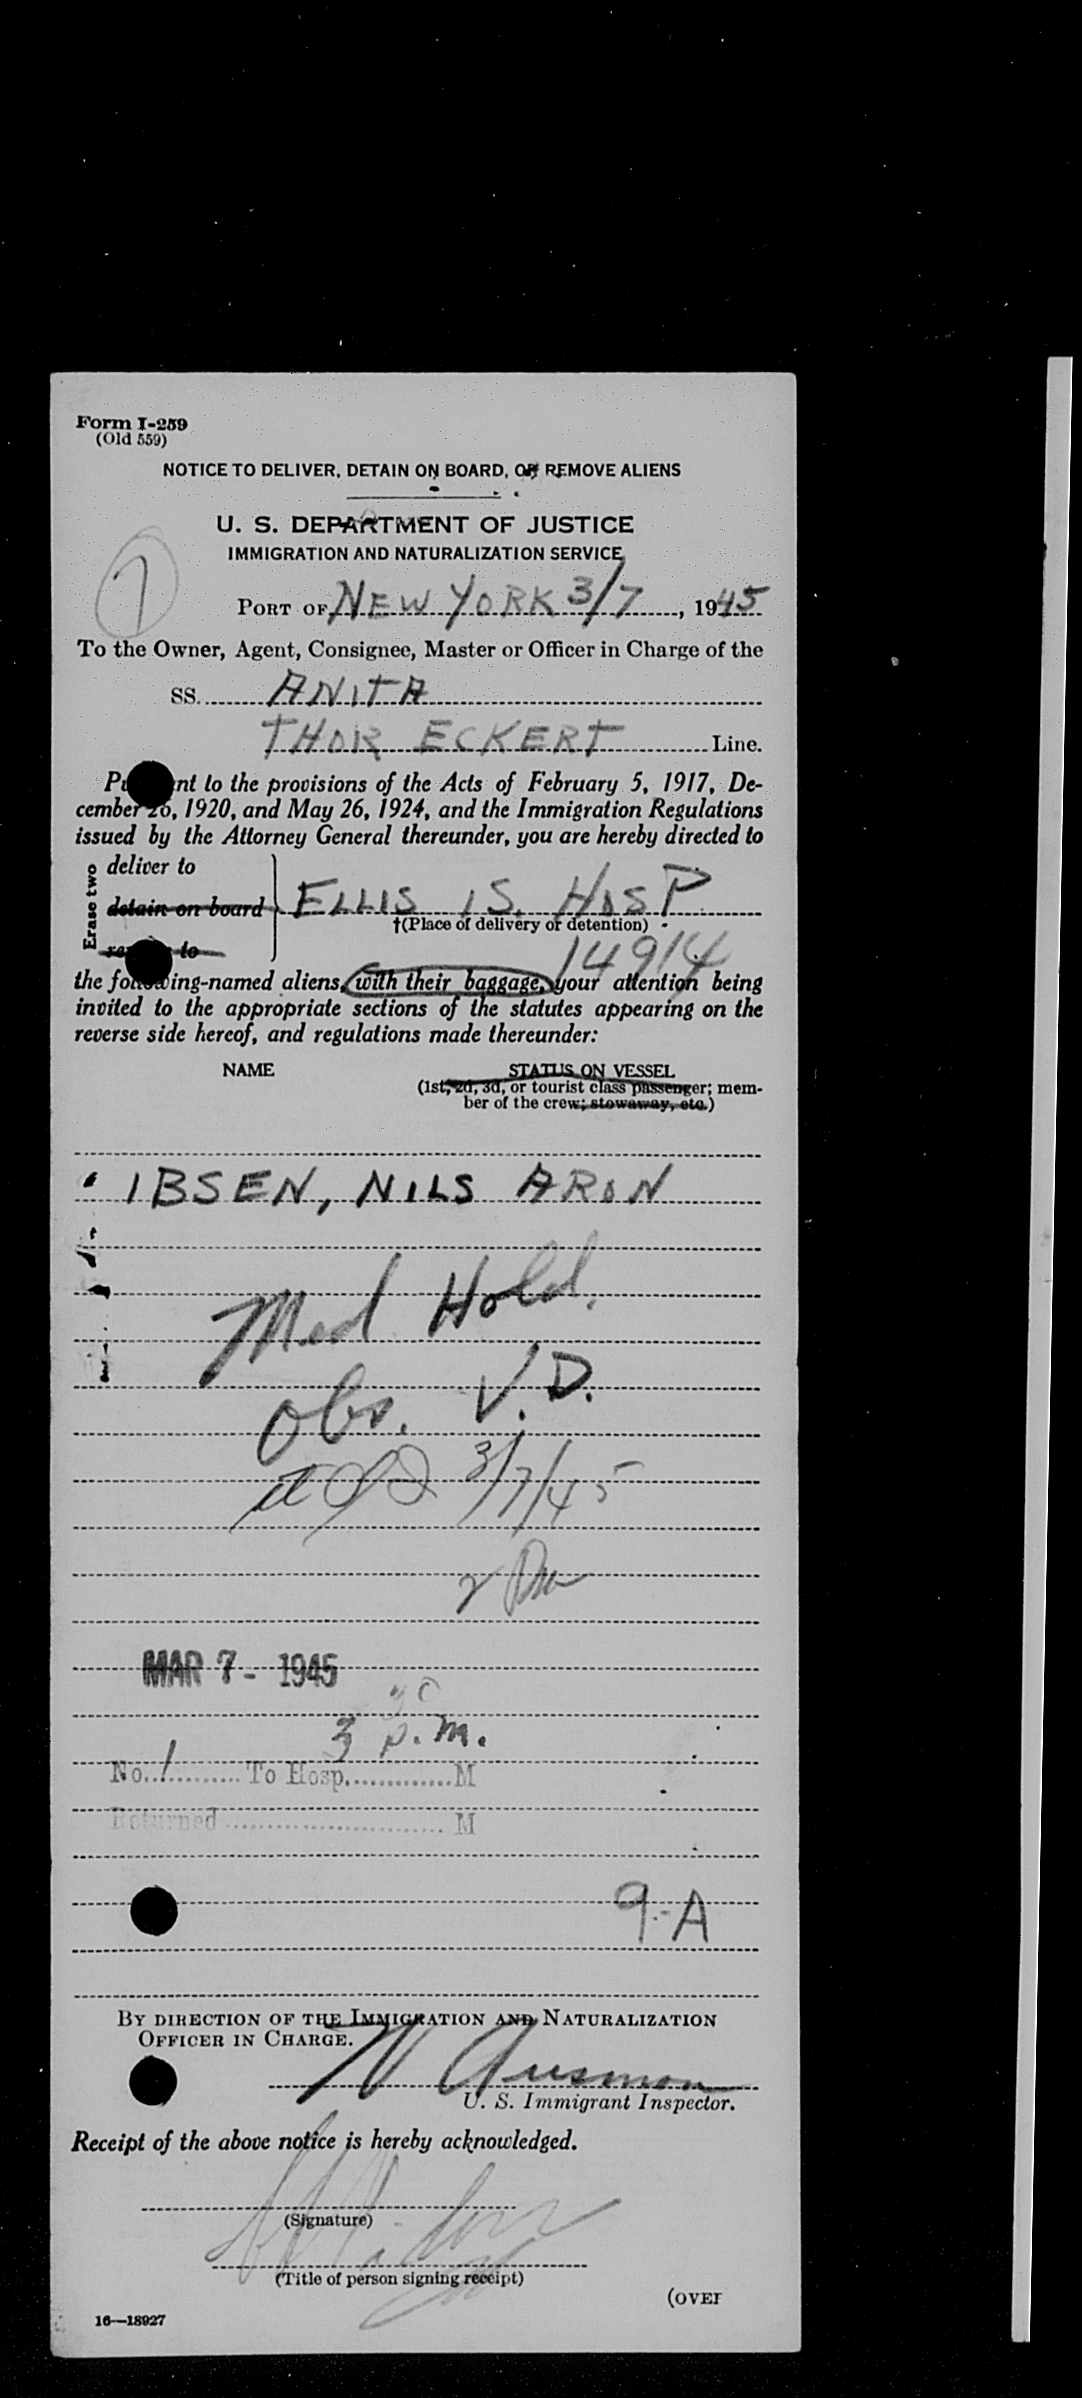 Form I-259
(Old 559)
NOTICE TO DELIVER, DETAIN ON BOARD, OR REMOVE ALIENS
U. S. DEPARTMENT OF JUSTICE
IMMIGRATION AND NATURALIZATION SERVICE
1
PORT OF NEW YORK 3/7, 1945
To the Owner, Agent, Consignee, Master or Officer in Charge of the
SS. ANITA
THOR ECKERT Line.
Pu nt to the provisions of the Acts of February 5, 1917, De-
cember 26, 1920, and May 26, 1924, and the Immigration Regulations
issued by the Attorney General thereunder, you are hereby directed to
Erase two
deliver to
detain on board ELLIS IS. HOSP
†(Place of delivery or detention)
to
14914
the following-named aliens, with their baggage, your attention being
invited to the appropriate sections of the statutes appearing on the
reverse side hereof, and regulations made thereunder:
NAME STATUS ON VESSEL
(1st, 2d, 3d, or tourist class passenger; mem-
ber of the crew; stowaway, etc.)
IBSEN, NILS ARON
Med Hold.
Obs. V.D.
3/7/45
MAR 7 - 1945
3 p.m.
No. 1 To Hosp. M
Returned M
9-A
BY DIRECTION OF THE IMMIGRATION AND NATURALIZATION
OFFICER IN CHARGE.
U. S. Immigrant Inspector.
Receipt of the above notice is hereby acknowledged.
(Signature)
(Title of person signing receipt)
(OVER
16—18927